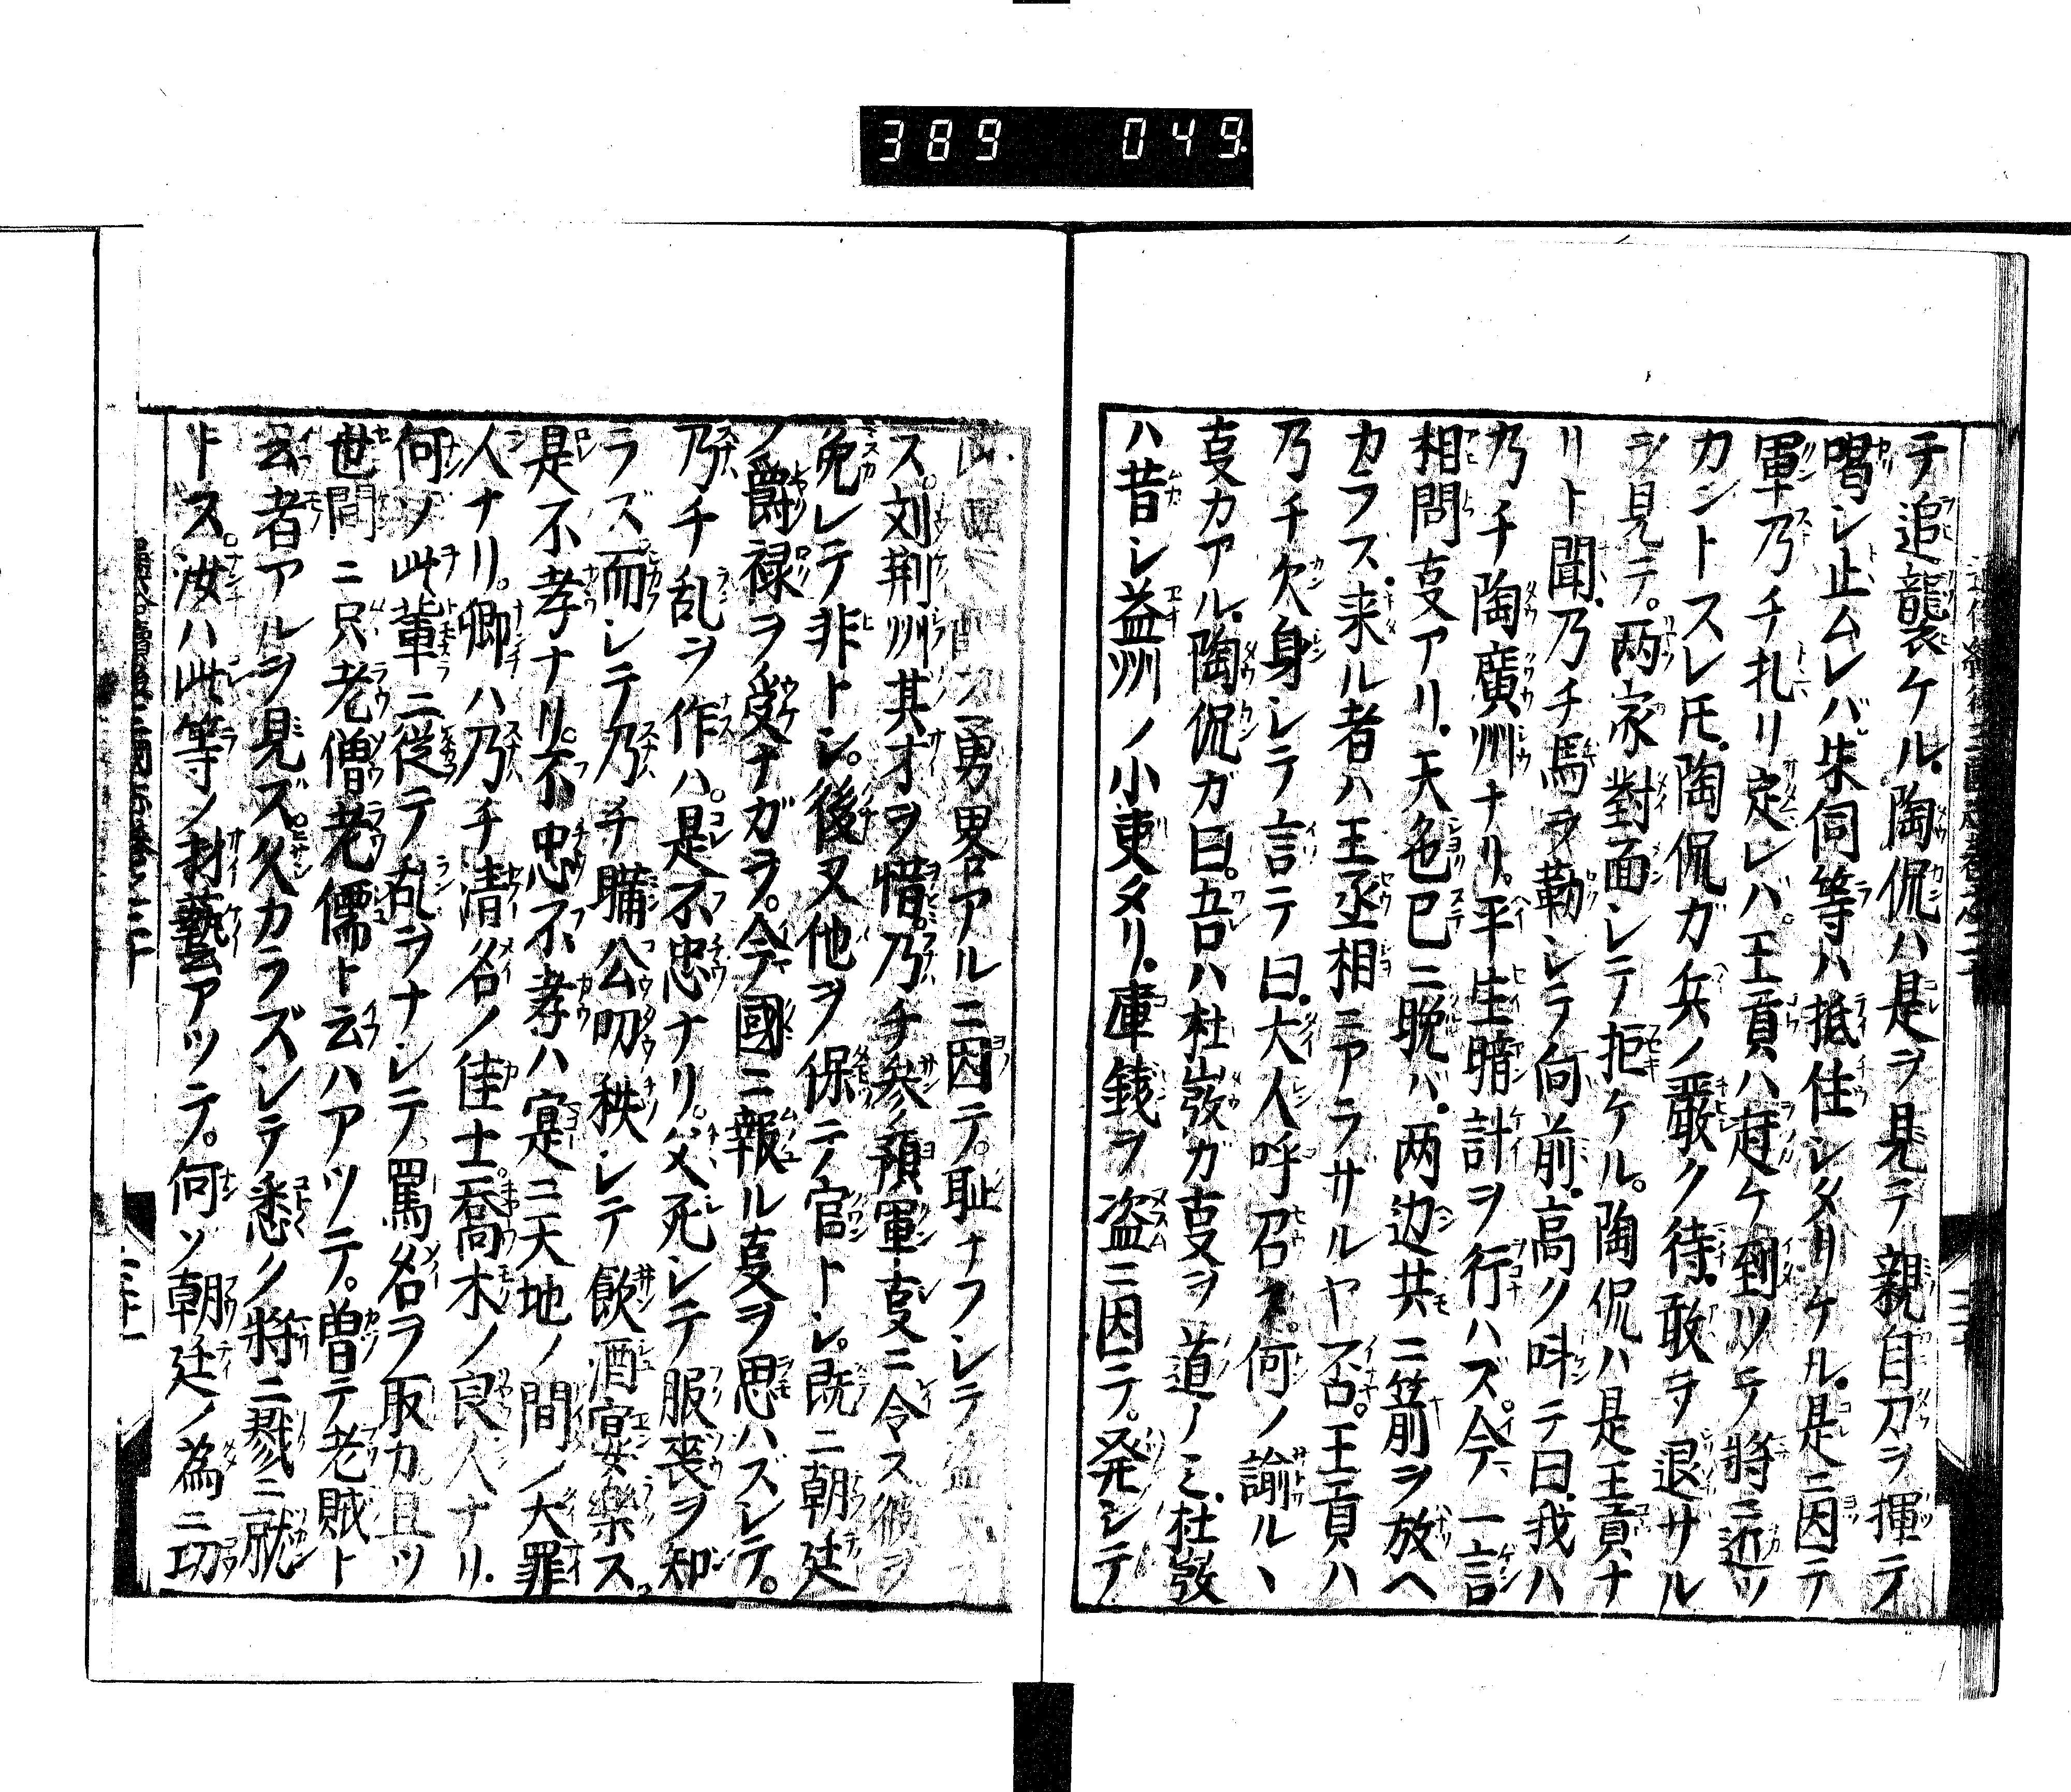 389 049
チ追襲ケル。陶侃ハ是ヲ見テ親自刀ヲ揮テ
喝シ止ムレバ。朱伺等ハ抵住シタリケル。是ニ因テ
軍乃チ扎リ定レバ。王貢ハ赶ケ到ツテ將ニ近ツ
カントスレ𪜈。陶侃ガ兵ノ嚴ク待。敢テ退サル
ヲ見テ。两家對面シテ拒ケル。陶侃ハ是王貢ナ
リト聞。乃チ馬ヲ勒シテ向前。高ク呌テ曰。我ハ
乃チ陶廣州ナリ。平生暗計ヲ行ハズ。今一言
相問叓アリ。天色已ニ晩バ。两边共ニ箭ヲ放ヘ
カラス。来ル者ハ王丞相ニアラサルヤ否。王貢ハ
乃チ欠身シテ言テ曰。大人呼召ス。何ノ諭ルヽ
叓カアル。陶侃ガ曰。吾ハ杜弢ガ叓ヲ道ノミ。杜弢
ハ昔シ益州ノ小吏タリ。庫錢ヲ盗ニ因テ。発シテ
勇畧アルニ因テ。耻ナフシテ
ス。刘荆州其才ヲ惜。乃チ参預軍叓ニ令ス彼ヲ
免レテ非トシ。後又他ヲ保テ官トシ。既ニ朝廷
ノ爵禄ヲ受ナガラ。今國ニ報ル叓ヲ思ハズシテ。
乃チ乱ヲ作ハ。是不忠ナリ。父死シテ服喪ヲ知
ラズ而シテ乃チ購公叨秩シテ飲酒宴樂ス。
是不孝ナリ。不忠不孝ハ寔ニ天地ノ間ノ大罪
人ナリ。卿ハ乃チ清名ノ佳士。喬木ノ良人ナリ。
何ソ此輩ニ從テ乱ヲナシテ。罵名ヲ取カ。且ツ
世間ニ只老僧老儒ト云ハアツテ。曽テ老賊ト
云者アルヲ見ズ。久カラズシテ悉ク將ニ戮ニ就ン
トス。汝ハ此等ノ材藝アツテ。何ソ朝廷ノ為ニ功